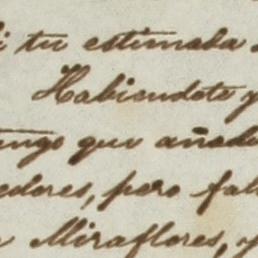 i tu estimada
Habiendote y
tengo que añadi
edores, pero fal
Miraflores, y